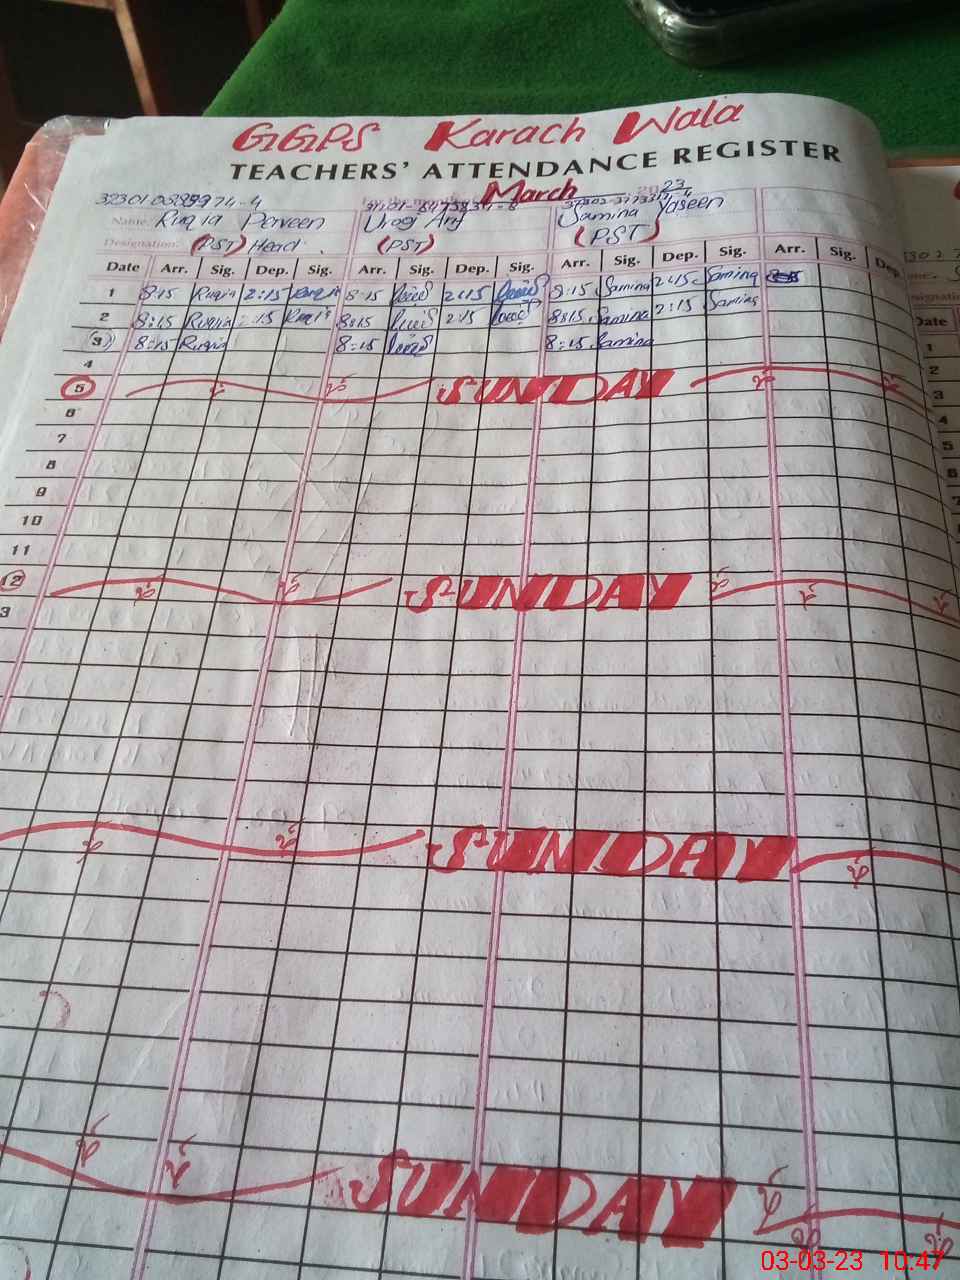 GGPS Karach Wala
TEACHERS' ATTENDANCE REGISTER
March 23
Name: Ruqia Perveen Samina Yaseen
Designation: (PST) Head (PST) (PST)
Date Arr. Sig. Dep. Sig. Arr. Sig. Dep. Sig. Arr. Sig. Dep. Sig. Arr. Sig. Dep.
1 8:15 Ruqia 2:15 Ruqia 8:15 2:15 8:15 Samina 2:15 Samina
2 8:15 Ruqia 2:15 8:15 2:15 8:15 Samina 2:15 Samina
(3) 8:15 Ruqia 8:15 8:15 Samina
4
5 SUNDAY
6
7
8
9
10
11
12 SUNDAY
3
SUNDAY
SUNDAY
Date
1
2
3
4
5
6
7
03-03-23 10:47